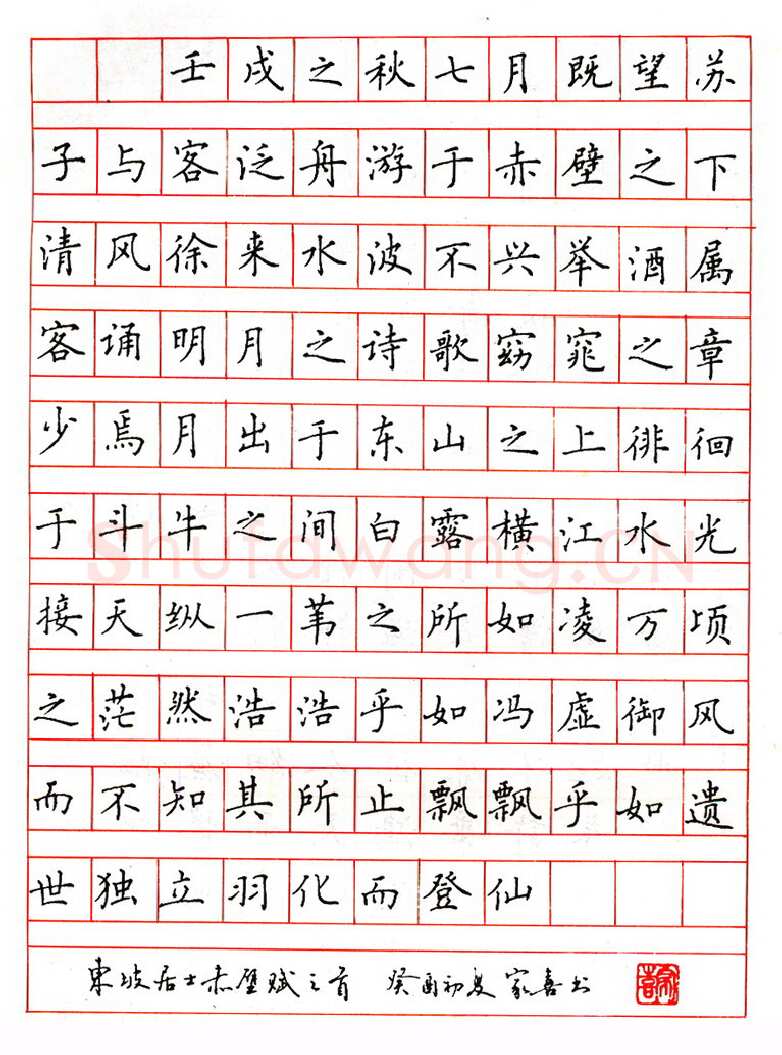 壬戌之秋七月既望苏
子与客泛舟游于赤壁之下
清风徐来水波不兴举酒属
客诵明月之诗歌窈窕之章
少焉月出于东山之上徘徊
于斗牛之间白露横江水光
shufawang.CN
接天纵一苇之所如凌万顷
之茫然浩浩乎如冯虚御风
而不知其所止飘飘乎如遗
世独立羽化而登仙
東坡居士赤壁赋之首 癸酉初夏 家喜书
家喜